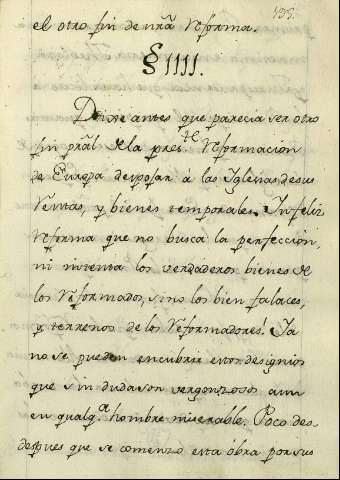 195.
el otro fin de nr̃a reforma.
§ IIII.
Dixe antes que parecia ser otro
fin prãl de la pres.te reformacion
de Europa despojar á las Iglesias desus
rentas, y bienes temporales. Infeliz
reforma que no busca la perfeccion,
ni intenta los verdaderos bienes de
los reformados, sino los bien falaces,
y terrenos de los reformadores! Ya
no se pueden encubrir estos designios
que sin duda son vergonzosos aun
en qualq.a hombre miserable. Poco des-
despues que se comenzo esta obra por sus